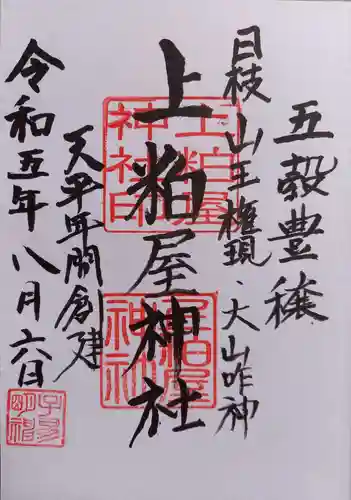 五穀豊穣
日枝山王権現・大山咋神
上粕屋神社
天平年間創建
令和五年八月六日
上粕屋神社印